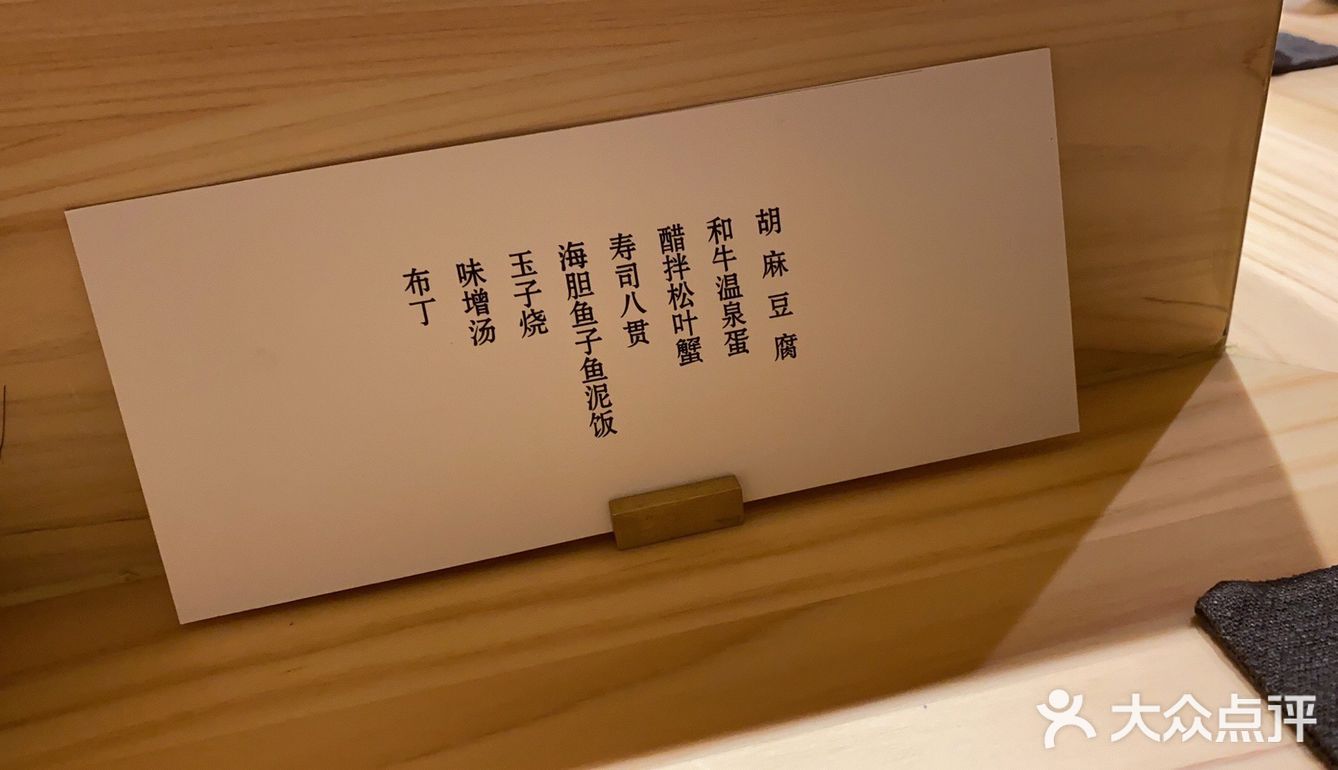 胡麻豆腐
和牛温泉蛋
醋拌松叶蟹
寿司八贯
海胆鱼子鱼泥饭
玉子烧
味增汤
布丁
大众点评